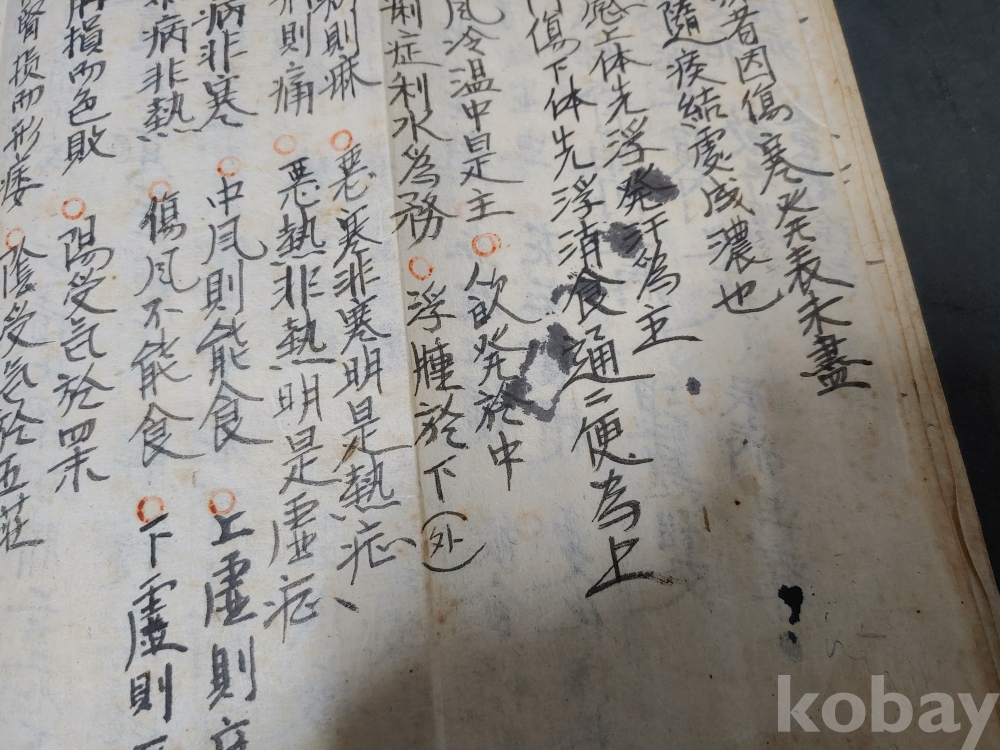 者因傷寒発表未盡
隨痰結處成濃也
感上体先浮発汗為主
傷下体先浮消食通二便為上
風冷温中是主○飮発於中
症利水為務○浮腫於下(外)
則麻○惡寒非寒明是熱症
則痛○惡熱非熱明是虛症
病非寒○中風則能食○上虛則
病非熱○傷風不能食○下虛則
損而色敗○陽受气於四末
腎損而形痿○陰受气於五莊
kobay